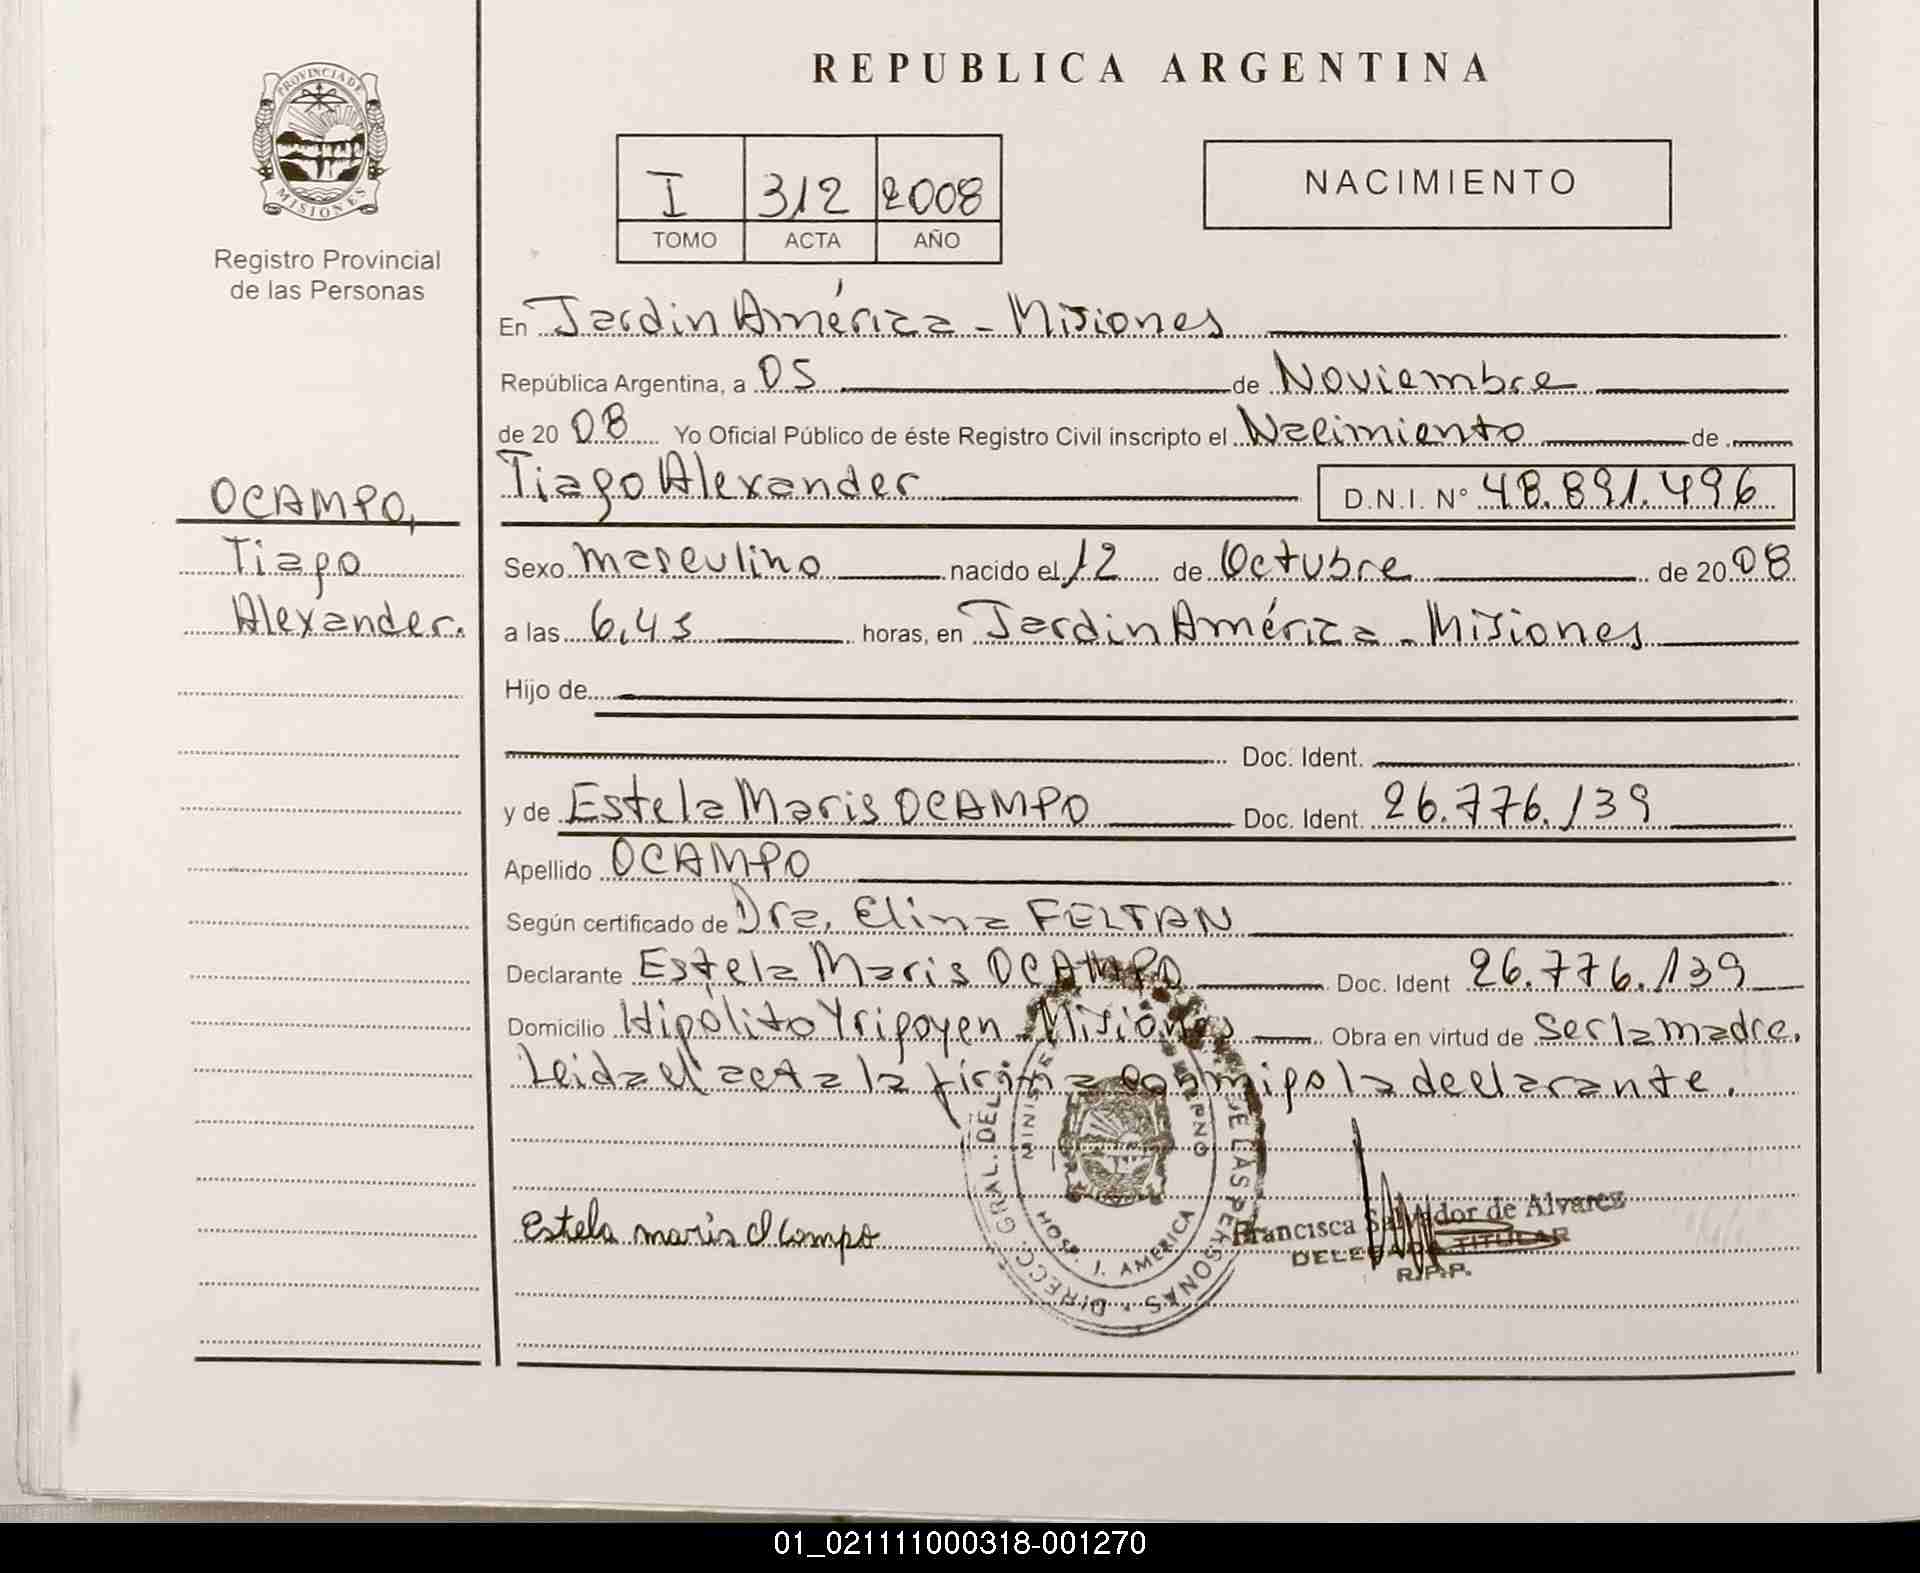 REPUBLICA ARGENTINA
PROVINCIA DE
MISIONES
Registro Provincial
de las Personas
I 312 2008
TOMO ACTA AÑO
NACIMIENTO
En Jardin América - Misiones
República Argentina, a 05 de Noviembre
de 20 08 Yo Oficial Público de éste Registro Civil inscripto el Nacimiento de
Tiago Alexander D.N.I. N° 48.891.496
OCAMPO,
Tiago
Alexander.
Sexo masculino nacido el 12 de Octubre de 20 08
a las 6,45 horas, en Jardin América - Misiones
Hijo de
Doc. Ident.
y de Estela Maris OCAMPO Doc. Ident. 26.776.139
Apellido OCAMPO
Según certificado de Dra. Elina FELTAN
Declarante Estela Maris OCAMPO Doc. Ident 26.776.139
Domicilio Hipólito Yrigoyen - Misiones Obra en virtud de Ser la madre.
Leida el acta la firma conmigo la declarante.
DIRECC. GRAL. DEL DE LAS PERSONAS
HOSP. J. AMERICA
Estela maris Ocampo
Francisca Salvador de Alvarez
DELEGADO TITULAR
R.P.P.
01_021111000318-001270